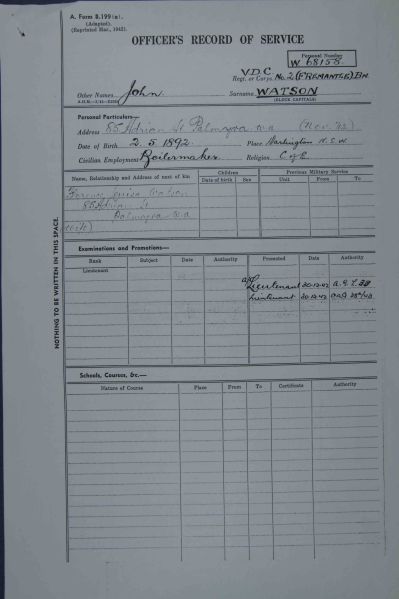 A. Form B.199(a).
(Adapted).
(Reprinted Mar., 1942).
OFFICER'S RECORD OF SERVICE
Personal Number
W 68158
V.D.C
Regt. or Corps. No. 2 (FREMANTLE) BN.
Other Names John Surname WATSON
(BLOCK CAPITALS)
Personal Particulars—
Address 85 Adrian St Palmyra W.A (Nov. 42)
Date of Birth 2.5.1892. Place N.S.W
Civilian Employment Boilermaker. Religion C of E.
Name, Relationship and Address of next of kin Children Previous Military Service
Date of birth Sex Unit From To
Watson
85 Adrian St
Palmyra W.A
(wife)
Examinations and Promotions—
Rank Subject Date Authority Promoted Date Authority
Lieutenant
Lieutenant
Lieutenant
Schools, Courses, &c.—
Nature of Course Place From To Certificate Authority
NOTHING TO BE WRITTEN IN THIS SPACE.